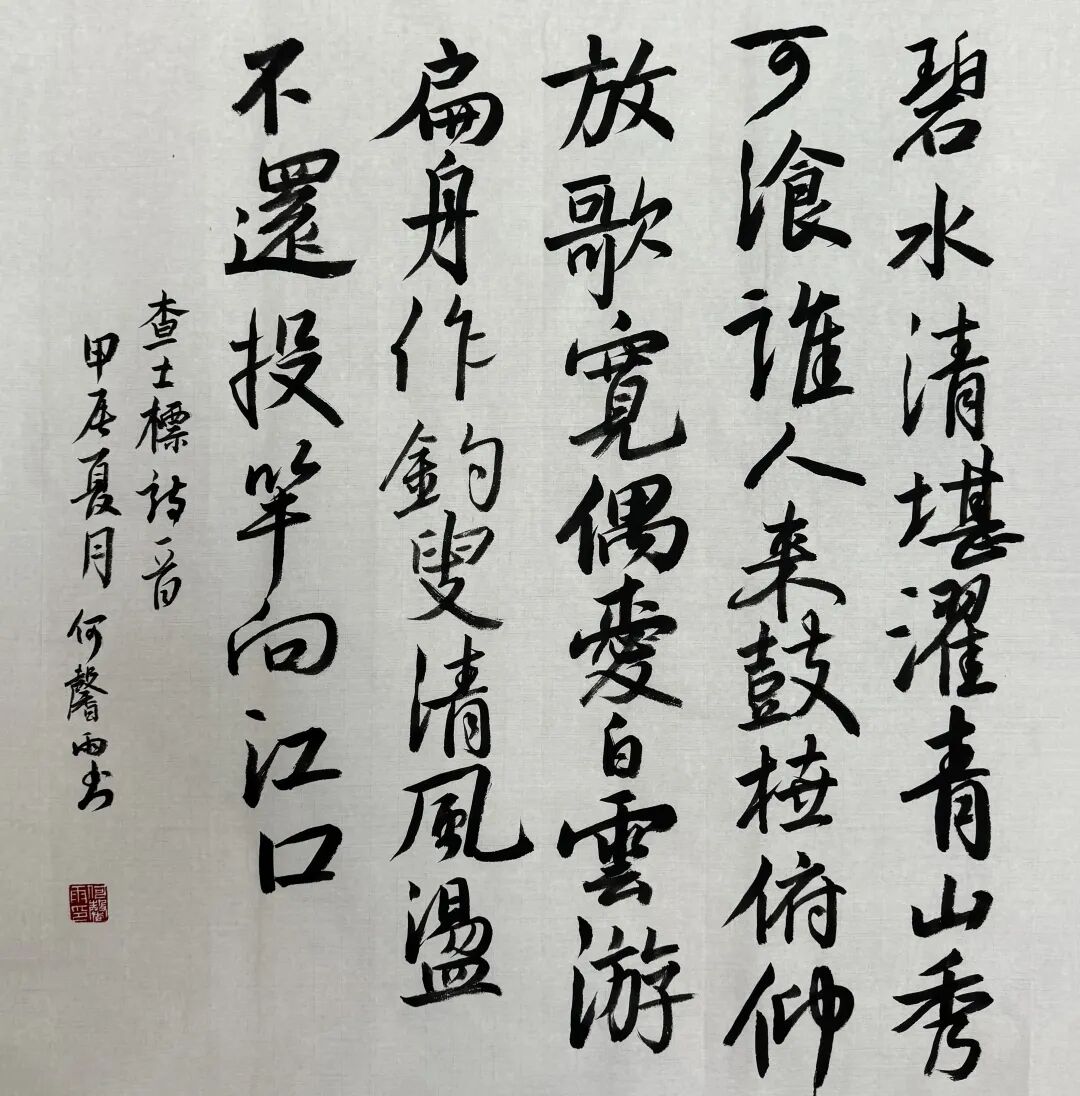 碧水清堪濯青山秀
可湌誰人来鼓枻俯仰
放歌寬偶愛白雲游
扁舟作釣叟清風盪
不還投竿向江口
查士標詩一首
甲辰夏月何馨雨书